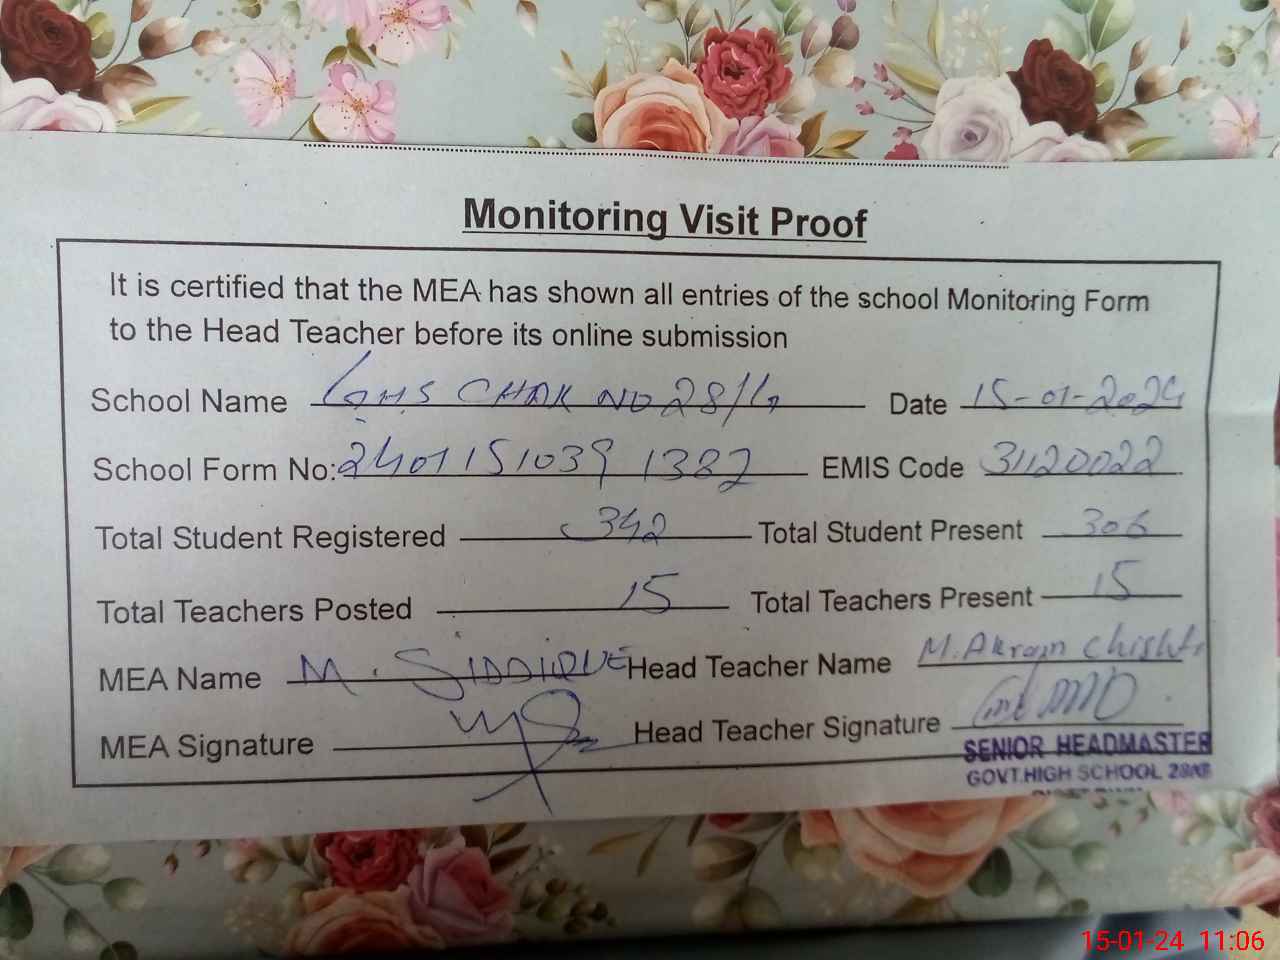 Monitoring Visit Proof
It is certified that the MEA has shown all entries of the school Monitoring Form
to the Head Teacher before its online submission
School Name GHS CHAK NO 28/G Date 15-01-2024
School Form No: 2401151039 1382 EMIS Code 31120022
Total Student Registered 342 Total Student Present 306
Total Teachers Posted 15 Total Teachers Present 15
MEA Name M. SIDDIQUE Head Teacher Name M. Akram Chishti
MEA Signature Head Teacher Signature
SENIOR HEADMASTER
GOVT.HIGH SCHOOL
15-01-24 11:06